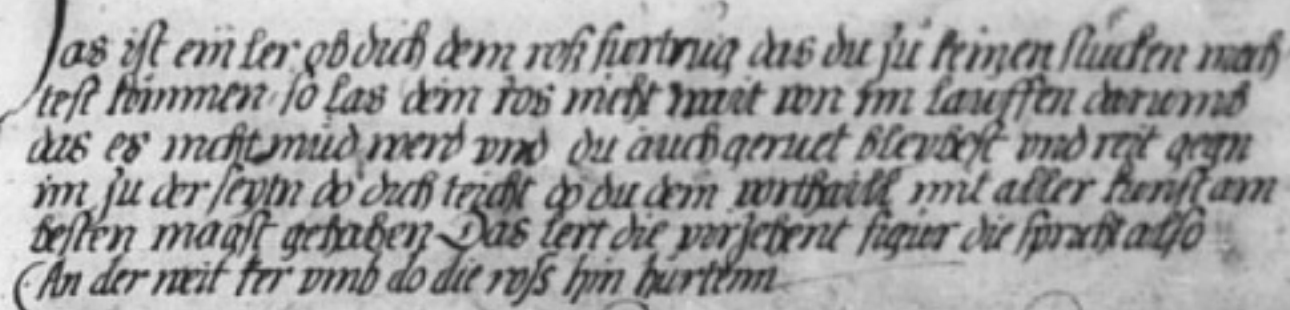 Das ist ein ler ob dich dein roß furtrug das du zu keinen stucken moch
test kommen so las dein ros nicht weit von im lauffen darumb
das es nicht müd werd vnd du auch geruet bleybest vnd reit gegn
im zu der seytn do dich teucht do du dein vorthaill mit aller kunst am
besten magst gehaben Das lert die vorzehent figur die spricht also
An der weit ker vmb do die ross hin hurtenn